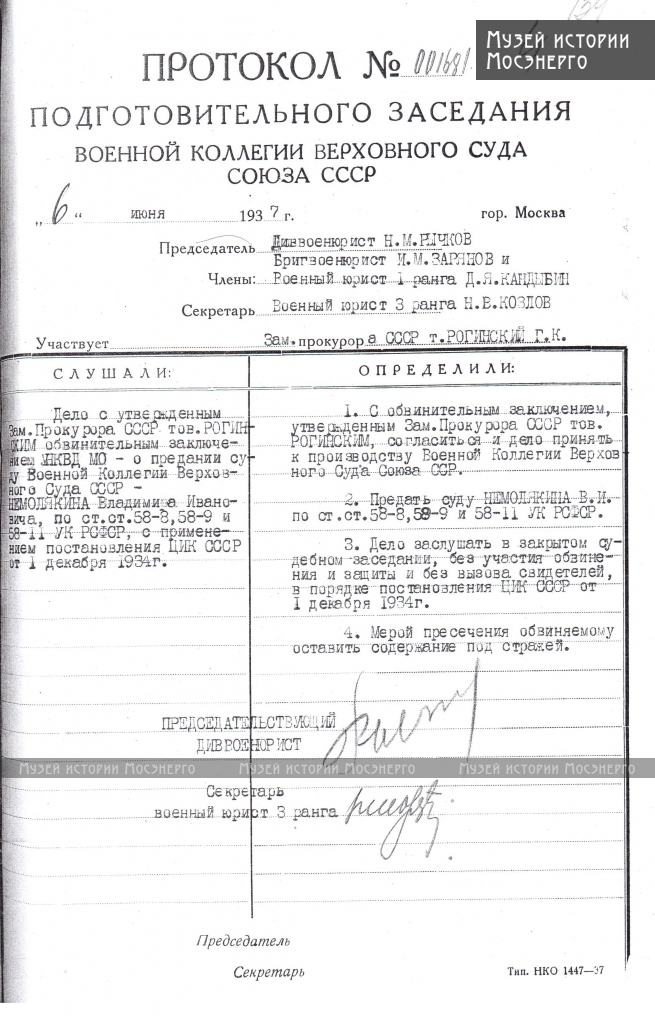 134
МУЗЕЙ ИСТОРИИ
МОСЭНЕРГО
ПРОТОКОЛ № 001681
ПОДГОТОВИТЕЛЬНОГО ЗАСЕДАНИЯ
ВОЕННОЙ КОЛЛЕГИИ ВЕРХОВНОГО СУДА
СОЮЗА СССР
„6“ июня 1937 г. гор. Москва
Председатель Диввоенюрист Н.М.РЫЧКОВ
Бригвоенюрист И.М.ЗАРЯНОВ и
Члены: Военный юрист 1 ранга Д.Я.КАНДЫБИН
Секретарь Военный юрист 3 ранга Н.В.КОЗЛОВ
Участвует Зам.прокурора СССР т.РОГИНСКИЙ Г.К.
СЛУШАЛИ:
Дело с утвержденным
Зам.Прокурора СССР тов.РОГИН-
СКИМ обвинительным заключе-
нием УНКВД МО - о предании су-
ду Военной Коллегии Верхов-
ного Суда СССР -
НЕМОЛЯКИНА Владимира Ивано-
вича, по ст.ст.58-8,58-9 и
58-11 УК РСФСР, с примене-
нием постановления ЦИК СССР
от 1 декабря 1934г.
ОПРЕДЕЛИЛИ:
1. С обвинительным заключением,
утвержденным Зам.Прокурора СССР тов.
РОГИНСКИМ, согласиться и дело принять
к производству Военной Коллегии Верхов
ного Суда Союза ССР.
2. Предать суду НЕМОЛЯКИНА В.И.
по ст.ст.58-8,58-9 и 58-11 УК РСФСР.
3. Дело заслушать в закрытом су-
дебном заседании, без участия обвине-
ния и защиты и без вызова свидетелей,
в порядке постановления ЦИК СССР от
1 декабря 1934г.
4. Мерой пресечения обвиняемому
оставить содержание под стражей.
ПРЕДСЕДАТЕЛЬСТВУЮЩИЙ
ДИВВОЕНЮРИСТ
МУЗЕЙ ИСТОРИИ МОСЭНЕРГО МУЗЕЙ ИСТОРИИ МОСЭНЕРГО МУЗЕЙ ИСТОРИИ МОСЭНЕРГО
Секретарь
военный юрист 3 ранга
Председатель
Секретарь
Тип. НКО 1447—37